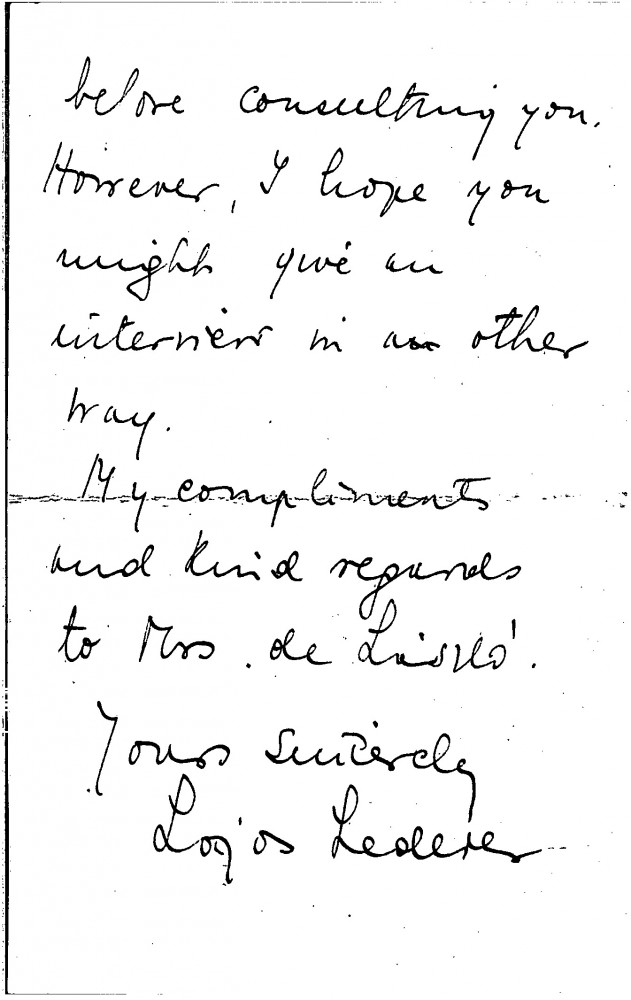 before consulting you.
However, I hope you
might give an
interview in an other
way.
My compliments
and kind regards
to Mrs. de László.
Yours sincerely
Lajos Lederer